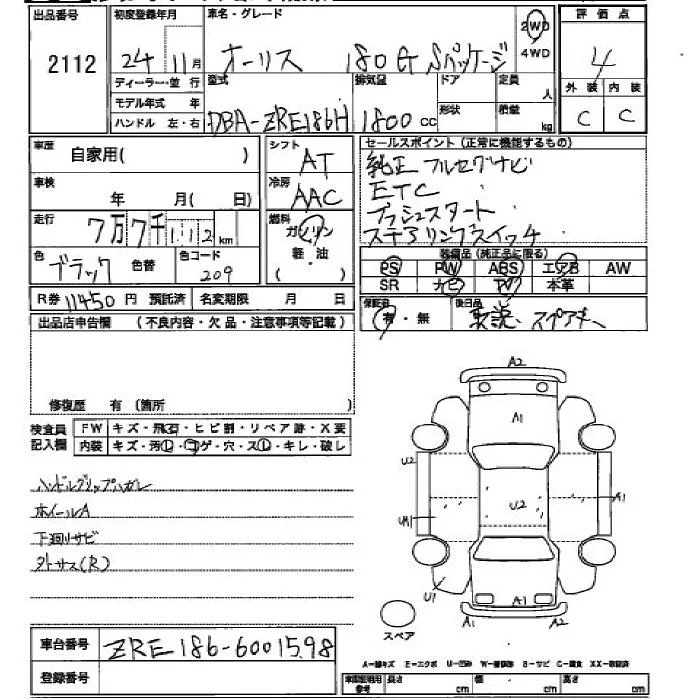 出品番号 初度登録年月 車名・グレード 評価点
2112 24年11月 オーリス 180G Sパッケージ 2WD 4WD 4
ディーラー・並 行 型式 排気量 ドア 定員 人 外装 内装
モデル年式 年 形状 積載 kg C C
ハンドル 左・右 DBA-ZRE186H 1800cc
車歴 自家用( ) シフト AT セールスポイント(正常に機能するもの)
純正フルセグナビ
車検 年 月( 日) 冷房 AAC ETC
プッシュスタート
走行 7万7千112km 燃料 ガソリン ステアリングスイッチ
軽・油 装備品(純正品に限る)
色 ブラック 色替 色コード 209 PS PW ABS エアB AW
SR ナビ TV 本革
R券 11450円 預託済 名変期限 月 日 保証書 後日品
出品店申告欄 (不良内容・欠品・注意事項等記載) 有・無 取説 スペアキー
修復歴 有 (箇所 )
検査員記入欄 FW キズ・飛石・ヒビ割・リペア跡・X要
内装 キズ・汚し・コゲ・穴・スレ・キレ・破レ
A2
A1
U2
ハンドルグリップハガレ
ホイールA
U2 A1
下廻りサビ UA1
外サス(R)
U1 A1
A2
スペア
車台番号 ZRE186-6001598
登録番号
A-線キズ E-エクボ U-凹み W-補修跡 S-サビ C-腐食 XX-取替済
車両証明用参考 長さ cm 幅 cm 高さ cm